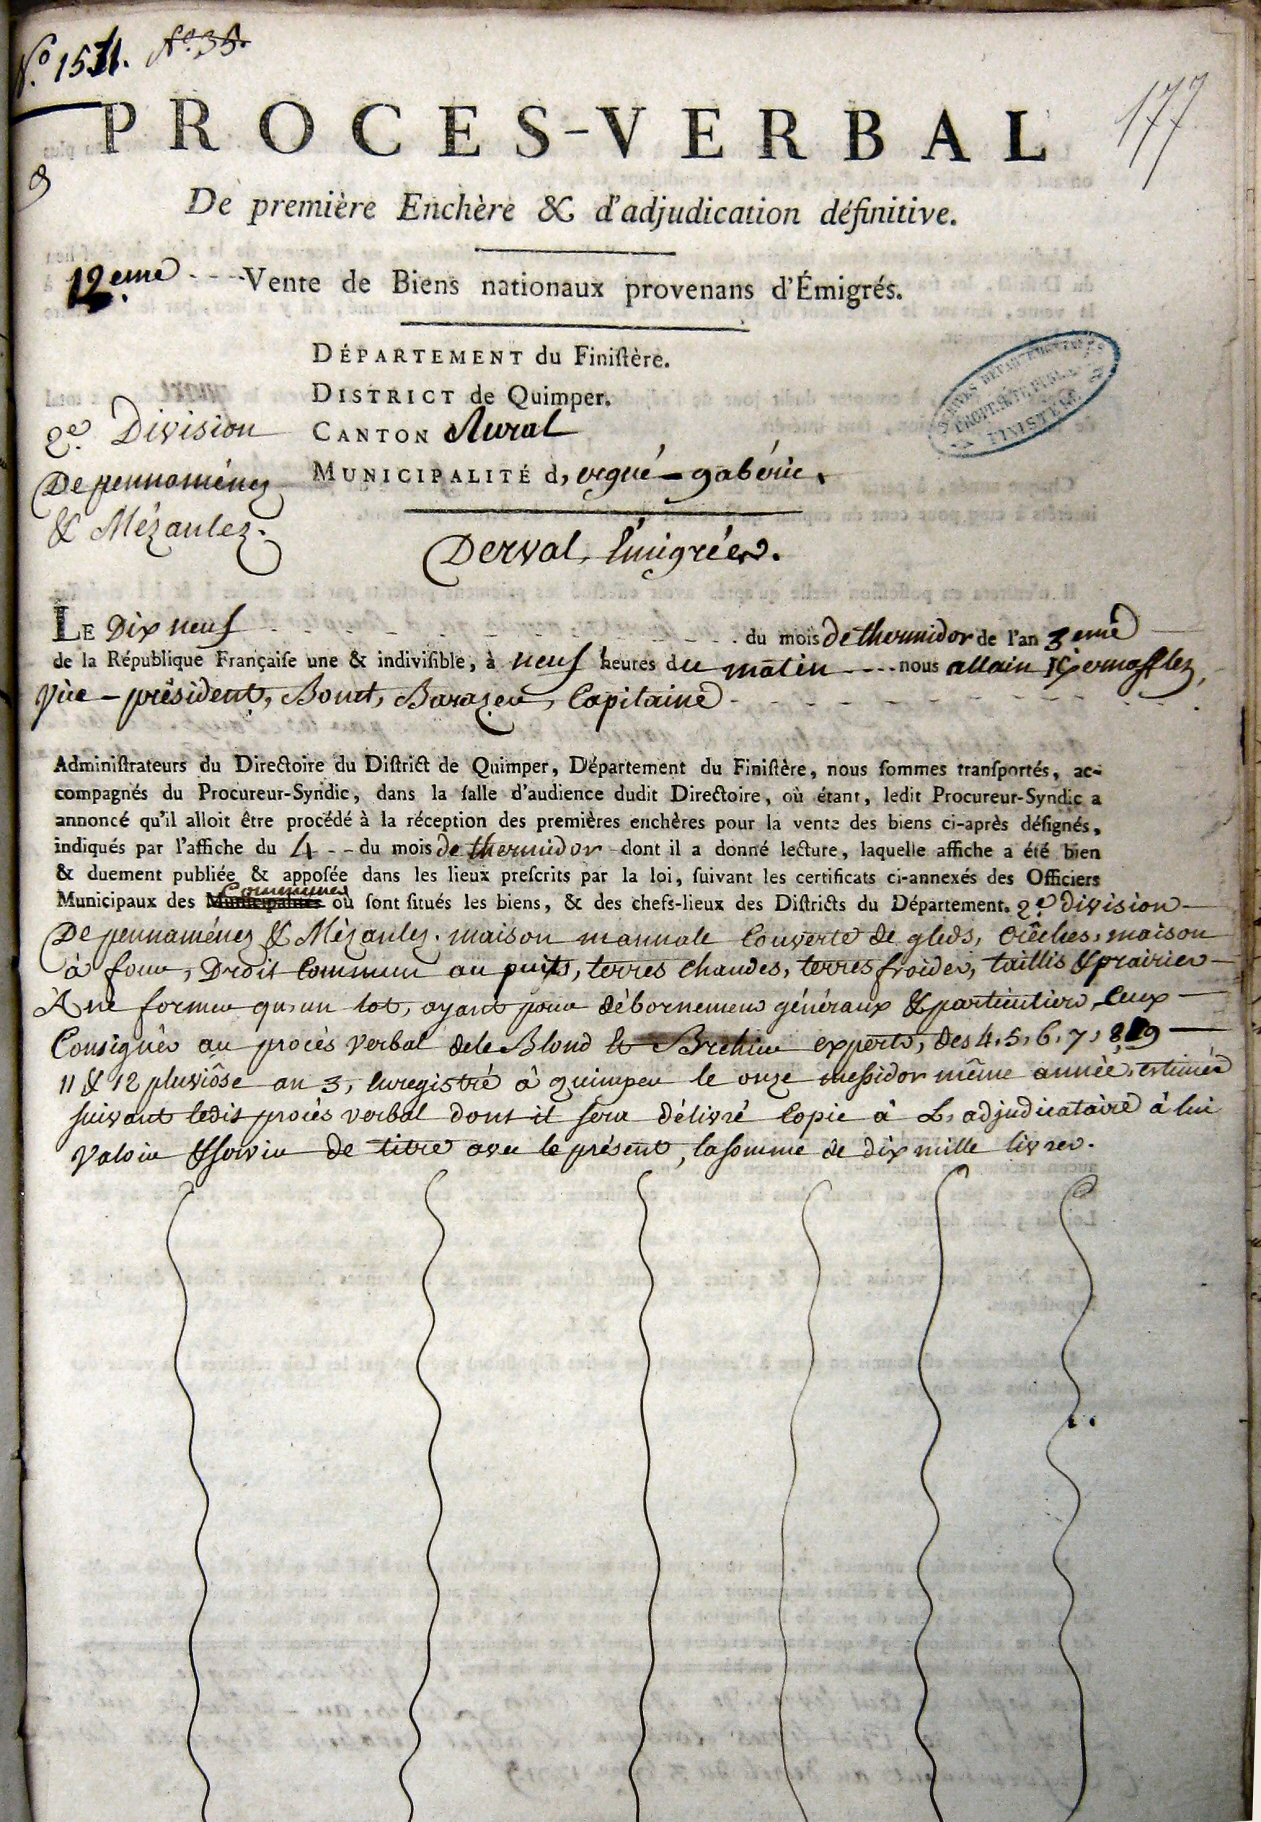 N.° 1531. N° 38.
177
PROCES-VERBAL
De première Enchère & d'adjudication définitive.
12.eme Vente de Biens nationaux provenans d'Émigrés.
DÉPARTEMENT du Finistère.
DISTRICT de Quimper.
CANTON Rural
MUNICIPALITÉ d'ergué-gabéric.
2e Division
De pennaménez
& Mézanlez.
ARCHIVES DÉPARTEMENTALES
PROPRIÉTÉ PUBLIQUE
FINISTÈRE
Derval, Émigrés.
LE Dix neuf du mois de thermidor de l'an 3eme
de la République Française une & indivisible, à neuf heures du matin nous allain Kernafflez,
Vice-président, Bonet, Barazer, Capitaine
Administrateurs du Directoire du District de Quimper, Département du Finistère, nous sommes transportés, ac-
compagnés du Procureur-Syndic, dans la salle d'audience dudit Directoire, où étant, ledit Procureur-Syndic a
annoncé qu'il alloit être procédé à la réception des premières enchères pour la vente des biens ci-après désignés,
indiqués par l'affiche du 4 du mois de thermidor dont il a donné lecture, laquelle affiche a été bien
& duement publiée & apposée dans les lieux prescrits par la loi, suivant les certificats ci-annexés des Officiers
Communes
Municipaux des Municipalités où sont situés les biens, & des chefs-lieux des Districts du Département. 2e division
De pennaménez & Mézanlez. maison mannale couverte de gleds, crêches, maison
à four, Droit commun au puits, terres chaudes, terres froides, taillis & prairies
À ne former qu'un lot, ayant pour débornemens généraux & particuliers ceux
Consignés au procès verbal de le Blond & Brehier experts, des 4, 5, 6, 7, 8, 9
11 & 12 pluviôse an 3, Enregistré à quimper le onze messidor même année, estimés
suivant ledit procès verbal dont il sera délivré copie à L'adjudicataire à lui
valoir & servir de titre avec le présent, la somme de dix mille livres.